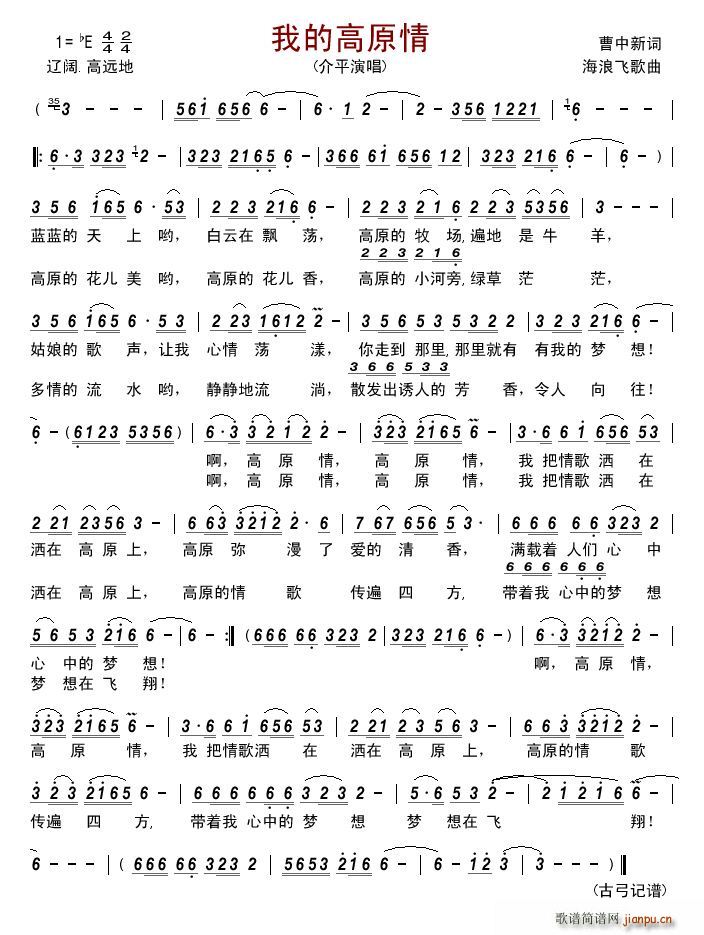 我的高原情
1= ♭E 4/4 2/4
曹中新词
辽阔. 高远地
(介平演唱)
海浪飞歌曲
( 3 - - - | 5 6 1 6 5 6 6 - | 6 · 1 2 - | 2 - 3 5 6 1 2 2 1 | 6 - - - |
‖: 6 · 3 3 2 3 2 - | 3 2 3 2 1 6 5 6 - | 3 6 6 6 1 6 5 6 1 2 | 3 2 3 2 1 6 6 - | 6 - ) |
3 5 6 1 6 5 6 · 5 3 | 2 2 3 2 2 1 6 6 - | 2 2 3 2 1 6 2 2 3 5 3 5 6 | 3 - - - |
蓝蓝的 天 上 哟, 白云在 飘 荡, 高原的 牧 场,遍地 是 牛 羊,
2 2 3 2 1 6
高原的 花儿 美 哟, 高原的 花儿 香, 高原的 小河旁,绿草 茫 茫,
3 5 6 1 6 5 6 · 5 3 | 2 2 3 1 6 1 2 2 - | 3 5 6 5 3 5 3 2 2 | 3 2 3 2 1 6 6 - |
姑娘的 歌 声,让我 心情 荡 漾, 你走到 那里,那里就有 有我的 梦 想!
3 6 6 5 3 3
多情的 流 水 哟, 静静地流 淌, 散发出诱人的 芳 香,令人 向 往!
6 - ( 6 1 2 3 5 3 5 6 ) | 6 · 3 3 2 1 2 2 - | 3 2 3 2 1 6 5 6 - | 3 · 6 6 1 6 5 6 5 3 |
啊, 高 原 情, 高 原 情, 我 把情歌 洒 在
啊, 高 原 情, 高 原 情, 我 把情歌 洒 在
2 2 1 2 3 5 6 3 - | 6 6 3 3 2 1 2 2 · 6 | 7 6 7 6 5 6 5 3 · | 6 6 6 6 6 3 2 3 2 |
洒在 高 原 上, 高原 弥 漫 了 爱的 清 香, 满载着 人们 心 中
6 6 6 6 6 6
洒在 高 原 上, 高原的 情 歌 传遍 四 方, 带着我 心中的 梦 想
5 6 5 3 2 1 6 6 - | 6 - :‖ ( 6 6 6 6 6 3 2 3 2 | 3 2 3 2 1 6 6 - ) | 6 · 3 3 2 1 2 2 - |
心 中的 梦 想! 啊, 高 原 情,
梦 想在 飞 翔!
3 2 3 2 1 6 5 6 - | 3 · 6 6 1 6 5 6 5 3 | 2 2 1 2 3 5 6 3 - | 6 6 3 3 2 1 2 2 - |
高 原 情, 我 把情歌洒 在 洒在 高 原 上, 高原的 情 歌
3 2 3 2 1 6 5 6 - | 6 6 6 6 6 6 3 2 3 2 - | 5 · 6 5 3 2 - | 2 1 2 1 6 6 - |
传遍 四 方, 带着我 心中的 梦 想 梦 想在 飞 翔!
6 - - - | ( 6 6 6 6 6 3 2 3 2 | 5 6 5 3 2 1 6 6 - | 6 - 1 2 3 | 3 - - - ) ‖
(古弓记谱)
歌谱简谱网 jianpu.cn